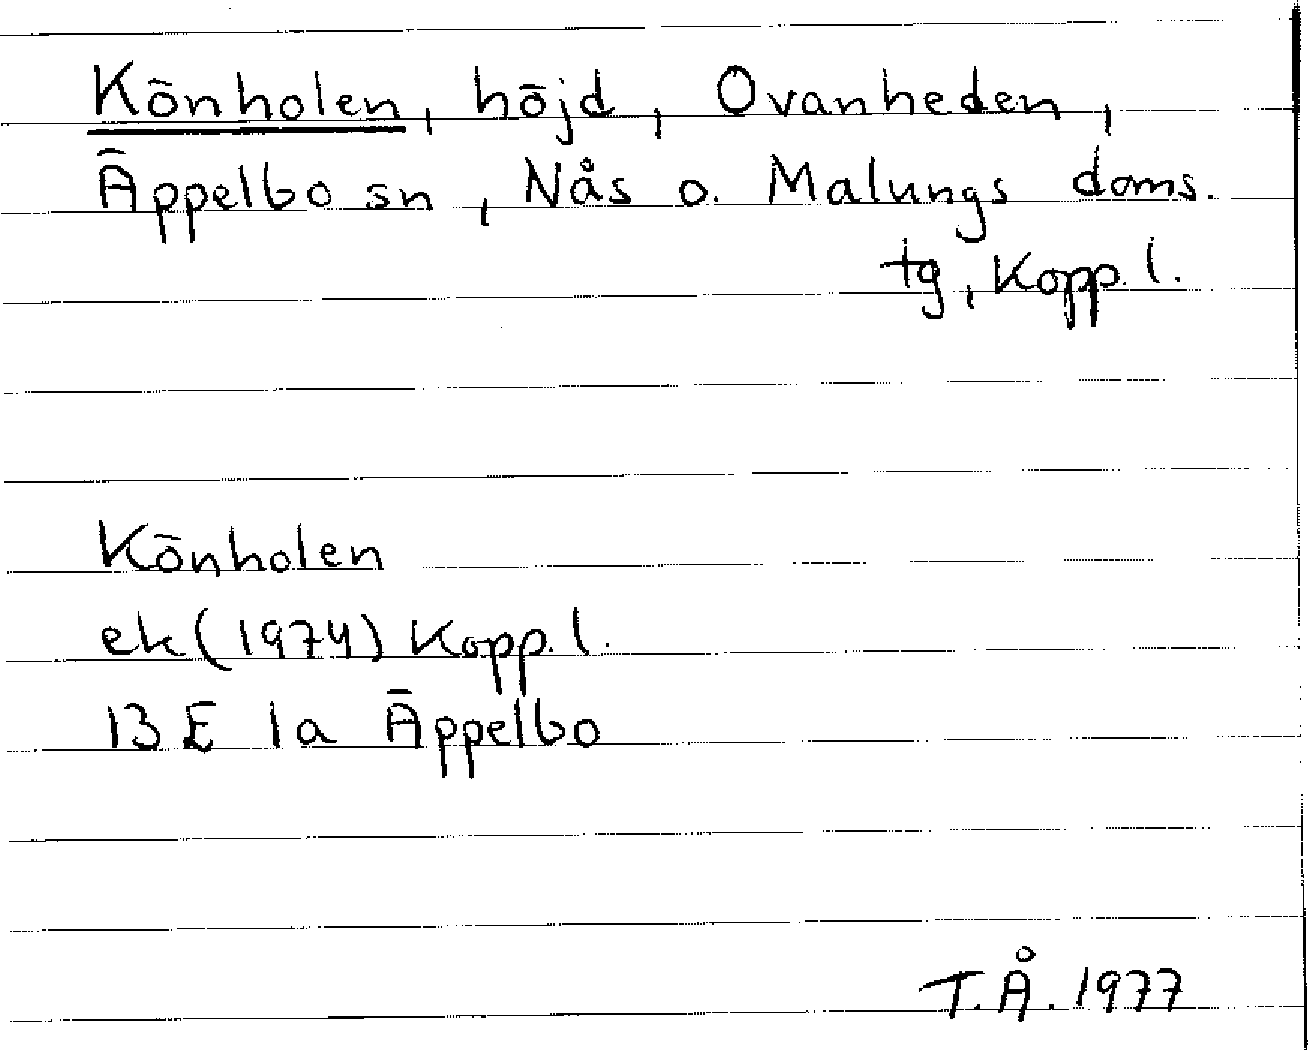 Könholen, höjd, Ovanheden,
Äppelbo sn, Nås o. Malungs doms.
tg, Kopp. l.
Könholen
ek (1974) Kopp. l.
13 E 1a Äppelbo
T.Å. 1977